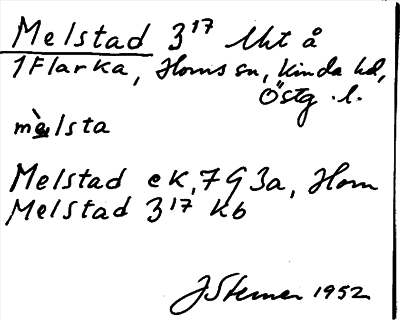 Melstad 3¹⁷ Uht å
1 Flarka, Horns sn, Kinda hd,
Östg. l.
mè̱lsta
Melstad ek, 7 G 3a, Horn
Melstad 3¹⁷ kb
JSterner 1952